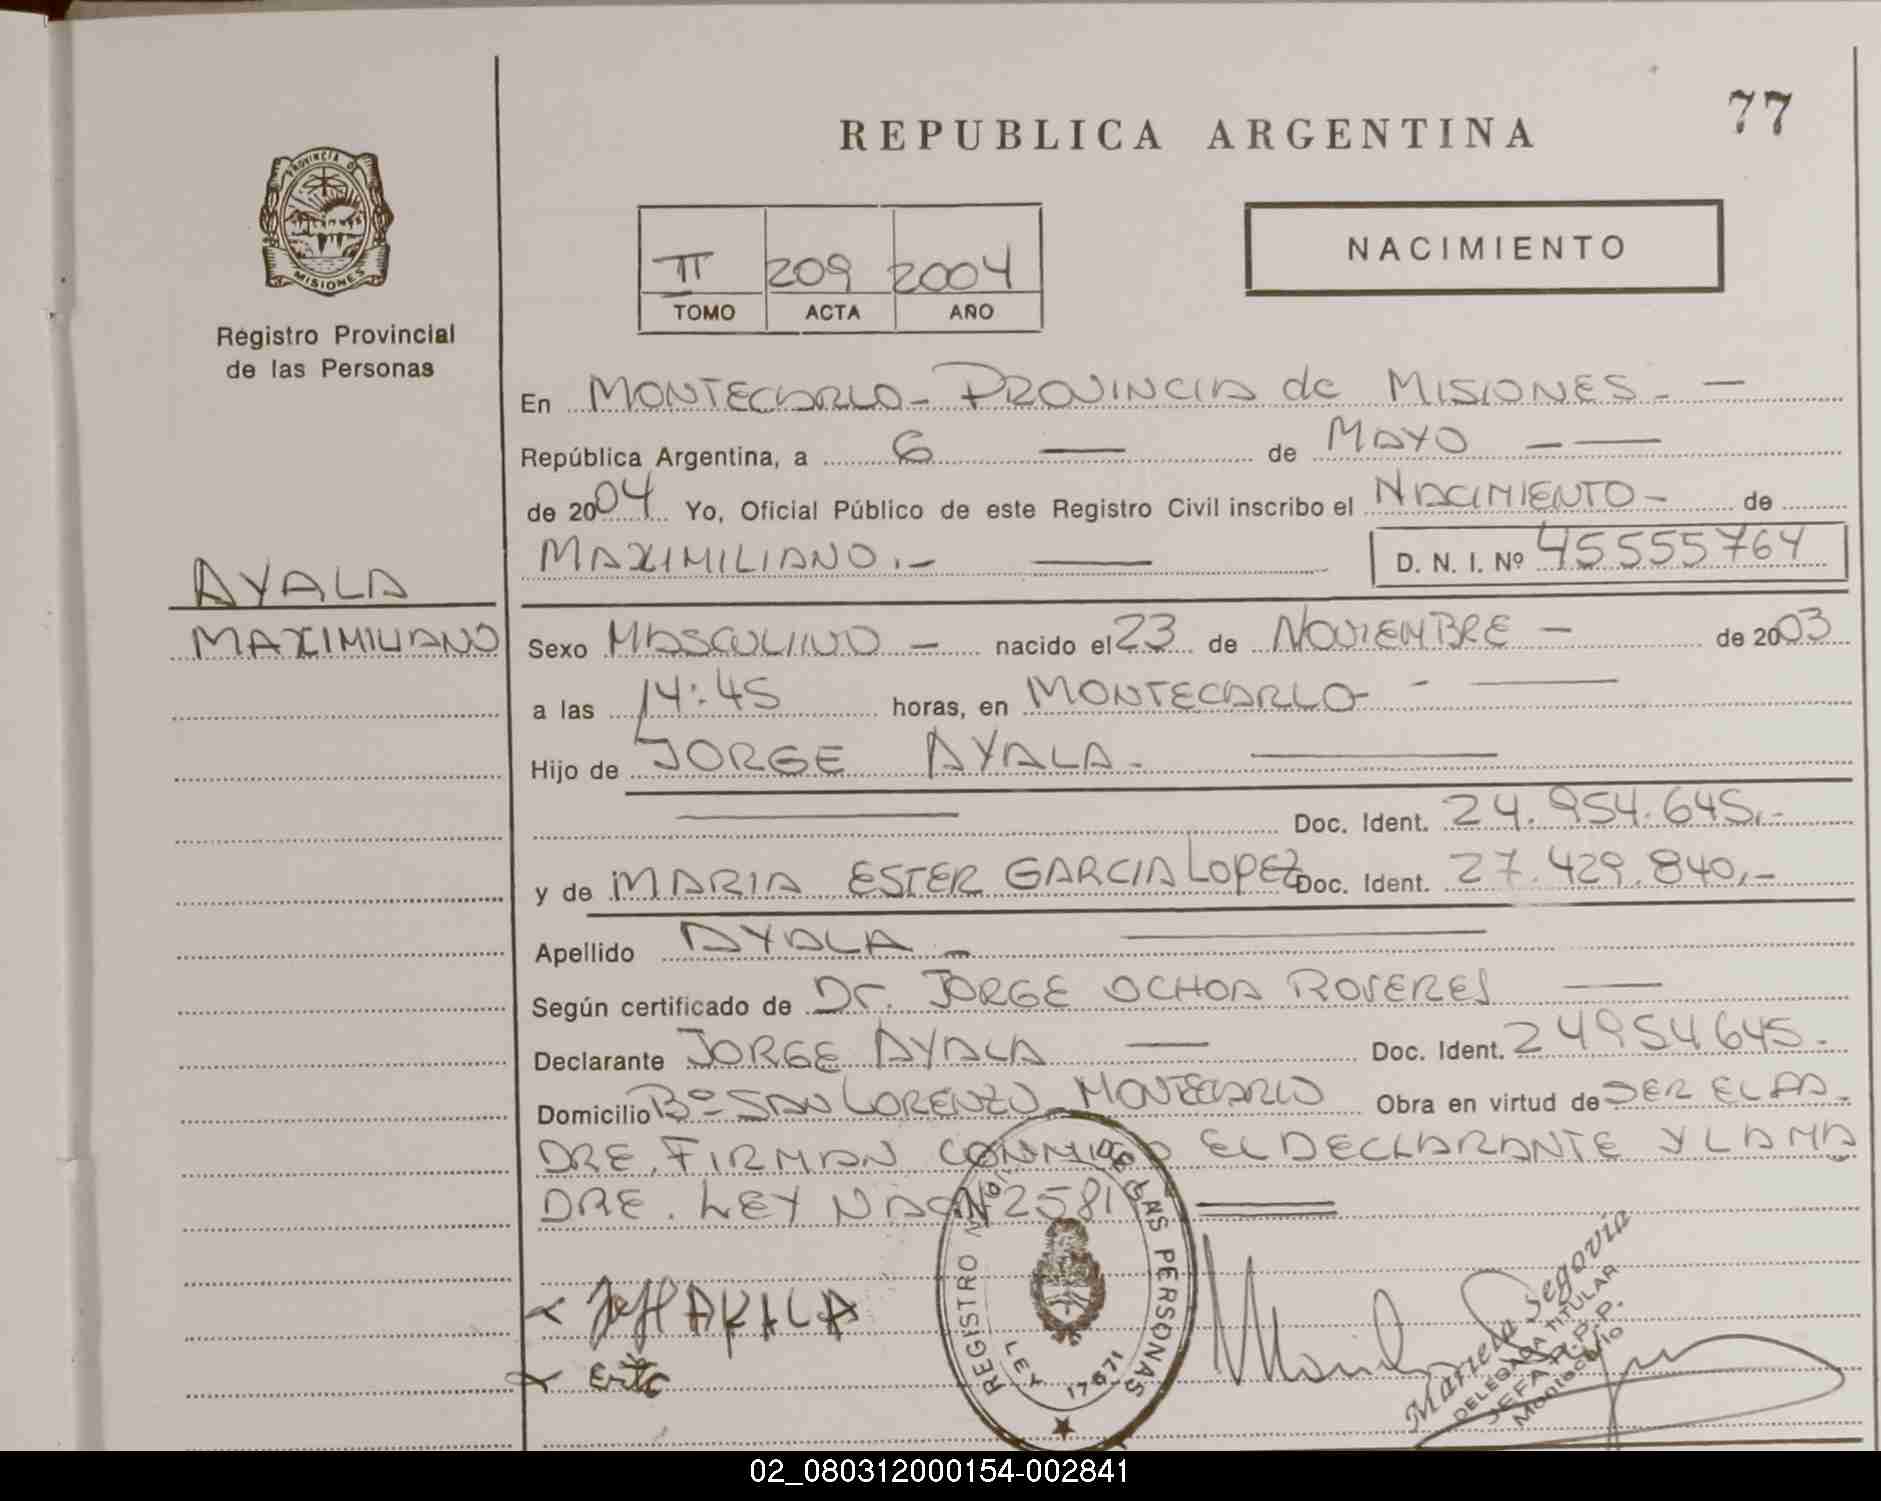 REPUBLICA ARGENTINA
77
PROVINCIA DE
MISIONES
Registro Provincial
de las Personas
II 209 2004
TOMO ACTA AÑO
NACIMIENTO
En MONTECARLO - PROVINCIA de MISIONES. —
República Argentina, a 6 — de MAYO — —
de 2004 Yo, Oficial Público de este Registro Civil inscribo el NACIMIENTO - de
MAXIMILIANO.- — D. N. I. Nº 45555764
AYALA
MAXIMILIANO
Sexo MASCULINO - nacido el 23 de NOVIEMBRE - de 2003
a las 14:45 horas, en MONTECARLO - - —
Hijo de JORGE AYALA. —
— Doc. Ident. 24.954.645.-
y de MARIA ESTER GARCIA LOPEZ Doc. Ident. 27.429.840,-
Apellido AYALA - —
Según certificado de Dr. JORGE OCHOA ROVERES —
Declarante JORGE AYALA — Doc. Ident. 24954645.
Domicilio Bº SAN LORENZO - MONTECARLO Obra en virtud de SER EL PA-
DRE. FIRMAN CONMIGO EL DECLARANTE Y LA MA
DRE. LEY NAC Nº 2581 —
AYALA
REGISTRO NACIONAL DE LAS PERSONAS
LEY 17671
Mariela Segovia
DELEGADA TITULAR
JEFA R.P.P.
Montecarlo
02_080312000154-002841